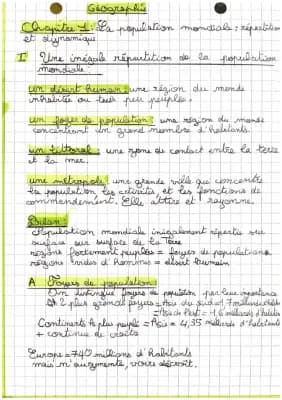 Géographie
Chapitre 1: La population mondiale: répartition
et dynamique
I Une inégale répartition de la population
mondiale:
un désert humain: une région du monde
inhabitée ou très peu peuplée.
un foyer de population: une région du monde
concentrant un grand nombre d'habitants.
un littoral: une zone de contact entre la terre
et la mer.
une métropole: une grande ville qui concentre
la population, les activités et les fonctions de
commandement. Elle attire et rayonne.
Bilan:
population mondiale inégalement répartie sur
surface de la Terre
régions fortement peuplées = foyers de population
régions vides d'Hommes = désert humain
A Foyers de population:
On distingue foyers de population par leur importance
2 plus grands foyers = Asie du sud =
= Asie de l'est = 1,6 milliards d'habitants
Continent le plus peuplé = Asie = 4,35 milliards d'habitants
+ continue de croître
Europe = 740 millions d'habitants
mais n'augmente, voire décroît.